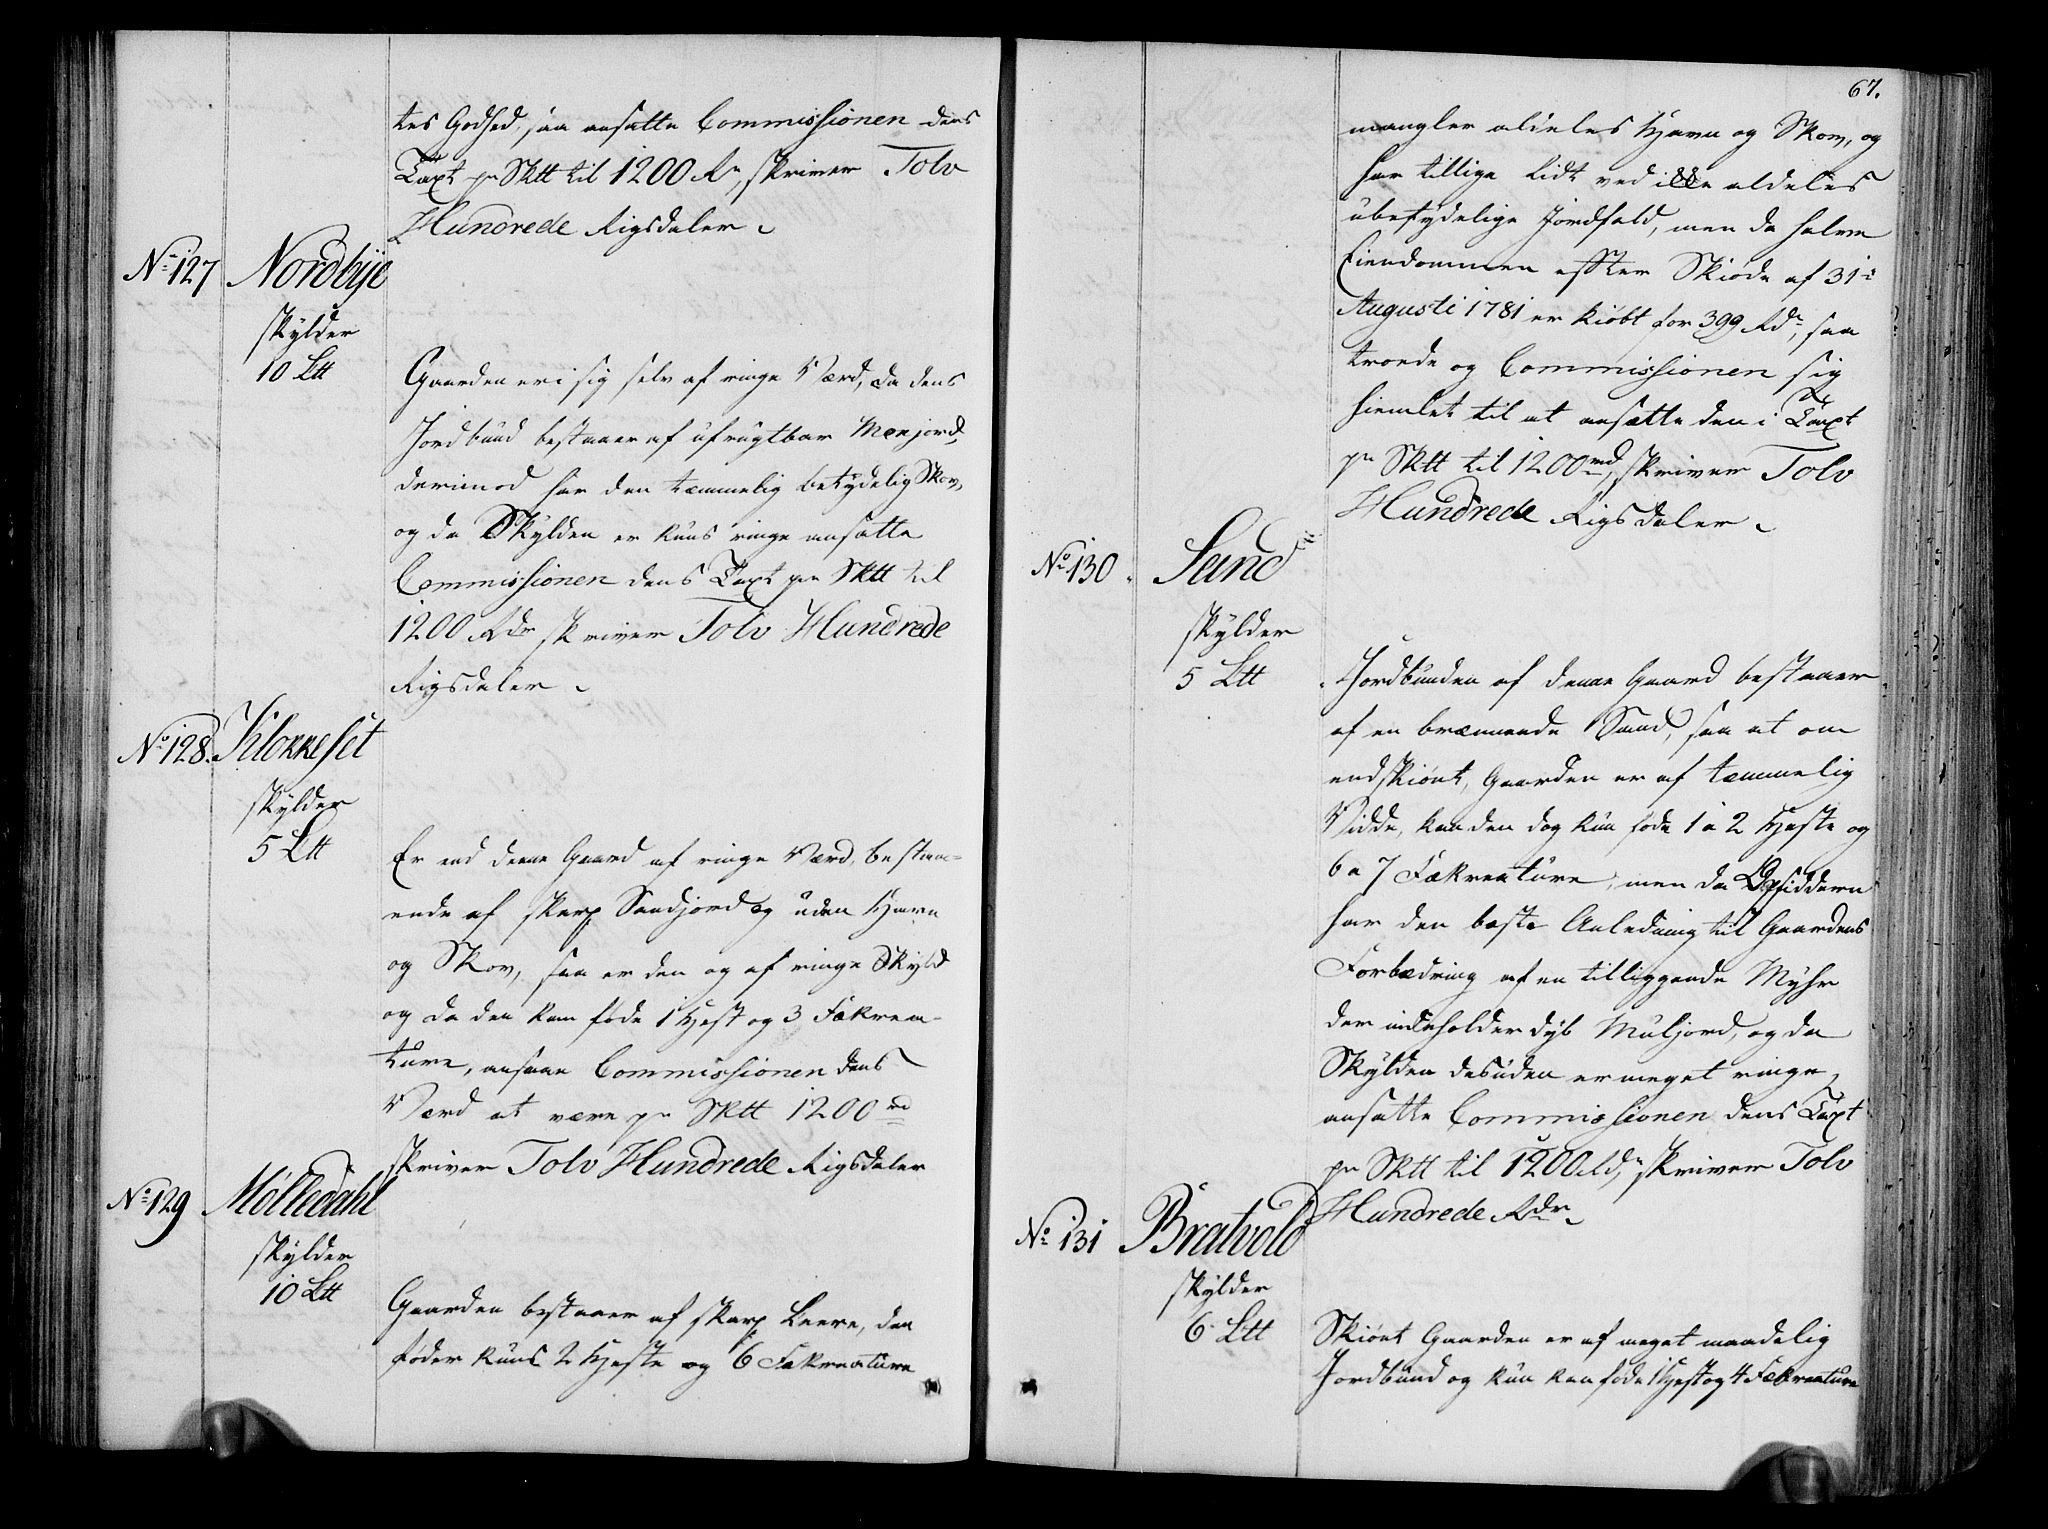 tes Godhed, saa ansatte Commissionen dens
Taxt pr Sktt til 1200 Rr, skriver Tolv
Hundrede Rigsdaler
No 127 Nordbye
skylder
10 Ltt
Gaarden er i sig selv af ringe Værd, da dens
Jordbund bestaaer af ufrugtbar Menjord,
derimod har den temmelig betydelig Skov,
og da Skylden er kuns ringe ansatte
Commissionen dens Taxt pr Sktt til
1200 Rdr skriver Tolv Hundrede
Rigsdaler
No 128. Klokkeset
skylder
5 Ltt
Er end denne Gaard af ringe Værd, bestaa-
ende af skarp Sandjord og uden Havn
og Skov, saa er den og af ringe Skyld
og da den kan føde 1 Hest og 3 Fækrea-
ture, ansaae Commissionen dens
Værd at være pr Sktt 1200 rd
skriver Tolv Hundrede Rigsdaler
No 129 Mølledahl
skylder
10 Ltt
Gaarden bestaaer af skarp Leere, den
føder kuns 2 Heste og 6 Fækreature
67.
mangler aldeles Havn og Skov, og
har tillige lidt ved ikke aldeles
ubetydelige Jordfald, men da halve
Eiendommen effter Skiøde af 31te
Augusti 1781 er kiøbt for 399 Rdr, saa
troede og Commissionen sig
hiemlet til at ansætte den i Taxt
pr Sktt til 1200 rd, skriver Tolv
Hundrede Rigsdaler
No 130 Sand
skylder
5 Ltt
Jordbunden af denne Gaard bestaaer
af en brænnende Sand, saa at om
endskiønt Gaarden er af temmelig
Vidde, kan den dog kun føde 1 a 2 Heste og
6 a 7 Fækreature, men da Opsidderen
har den beste Anledning til Gaardens
Forbedring af en tilliggende Myhr
der indeholder dyb Muljord, og da
Skylden desuden er meget ringe,
ansatte Commissionen dens Taxt
pr Sktt til 1200 Rd, skriver Tolv
Hundrede Rdr
No 131 Bratvold
skylder
6 Ltt
Skiønt Gaarden er af meget maadelig
Jordbund og kun kan føde 1 Hest og 4 Fækreature